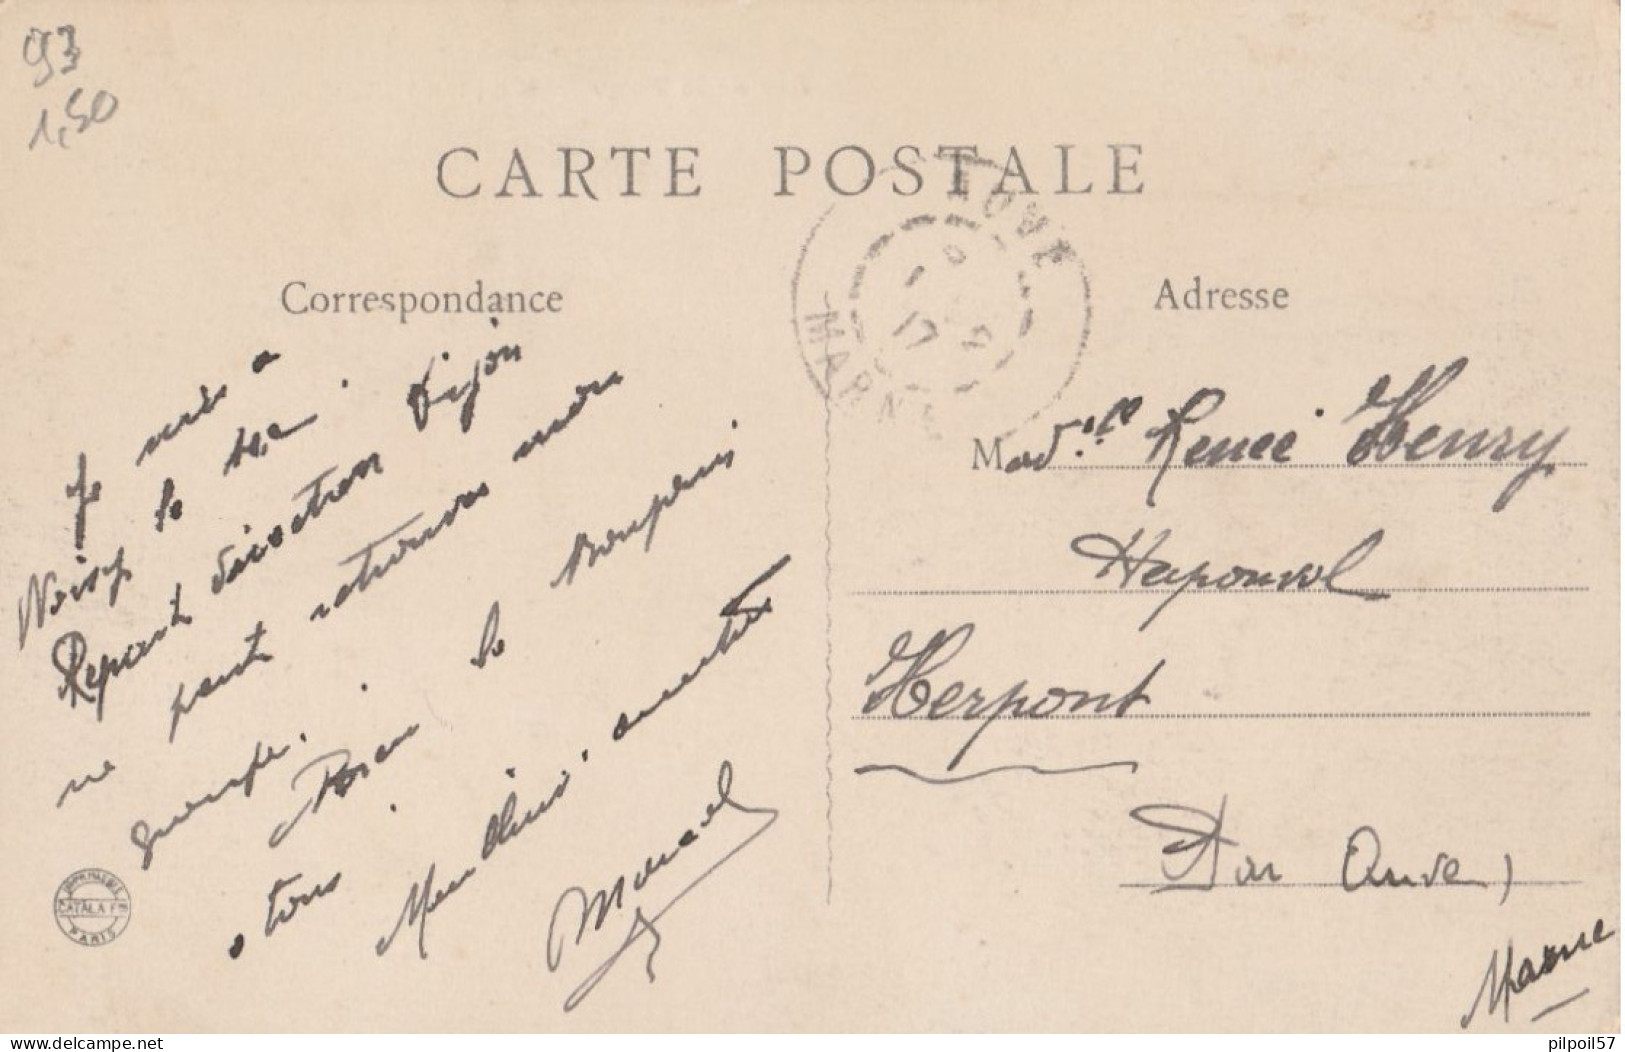 93
1,50
CARTE POSTALE
Correspondance
Adresse
AUVE
17
MARNE
Je suis a
Noisy le sec.
Repart direction Dijon
ne peut retrouver mon
groupe.
le
a tous.
Meilleurs amitiés
Marcel
Mad.elle Renée Henry
Herpont
Par Auve,
Marne
IMPRIMERIE
CATALA Fres
PARIS
www.delcampe.net
pilpoil57